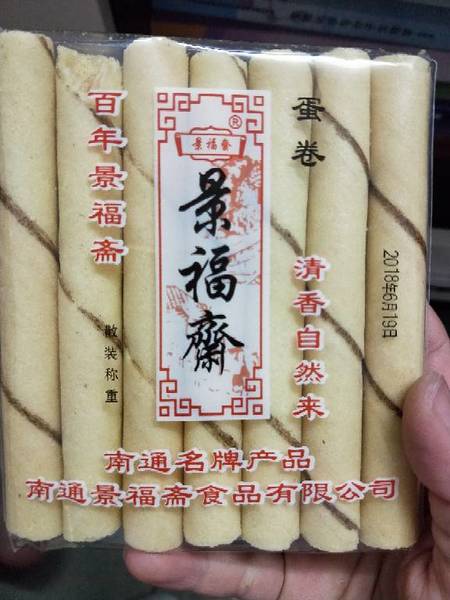 百年景福斋
景福斋
®
景福齋
蛋卷
清香自然来
2018年6月19日
散装称重
南通名牌产品
南通景福斋食品有限公司